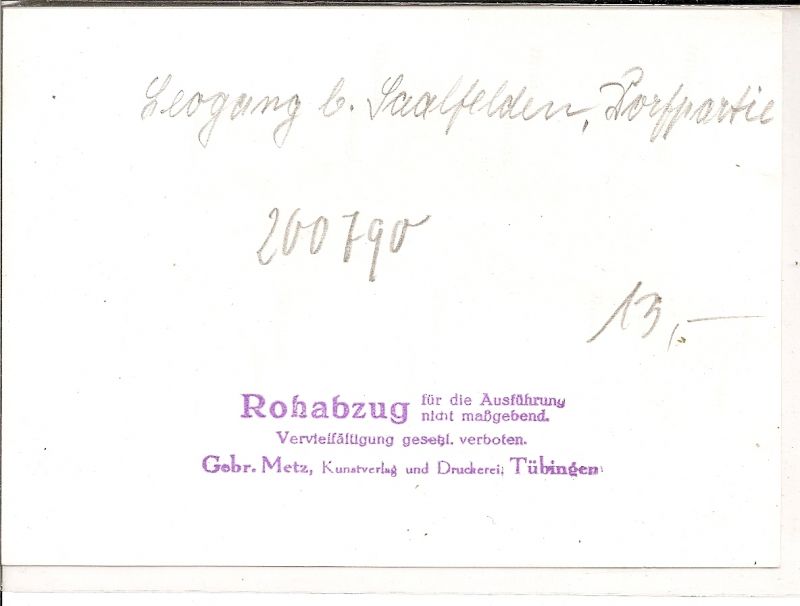 Leogang b. Saalfelden, Dorfpartie
200790
13,-
Rohabzug für die Ausführung
nicht maßgebend.
Vervielfältigung gesetzl. verboten.
Gebr. Metz, Kunstverlag und Druckerei, Tübingen